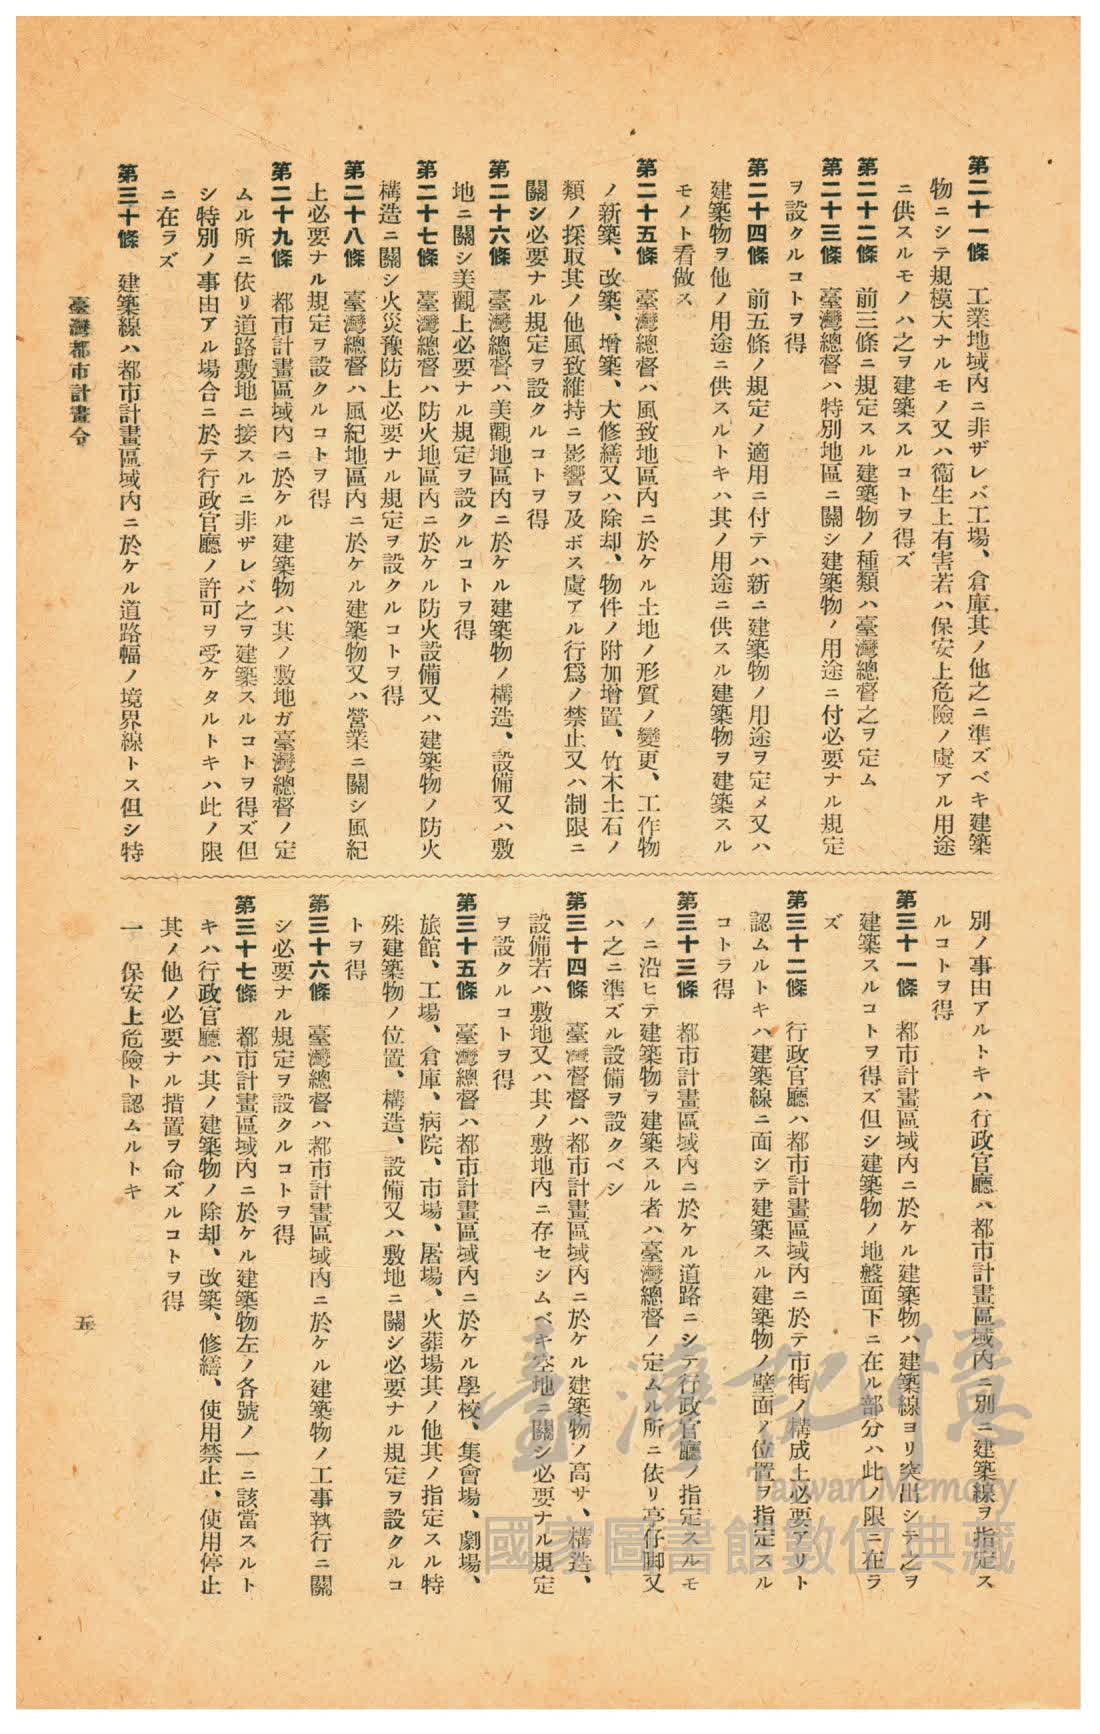 第二十一條　工業地域內ニ非ザレバ工場、倉庫其ノ他之ニ準ズベキ建築
物ニシテ規模大ナルモノ又ハ衞生上有害若ハ保安上危險ノ虞アル用途
ニ供スルモノハ之ヲ建築スルコトヲ得ズ
第二十二條　前三條ニ規定スル建築物ノ種類ハ臺灣總督之ヲ定ム
第二十三條　臺灣總督ハ特別地區ニ關シ建築物ノ用途ニ付必要ナル規定
ヲ設クルコトヲ得
第二十四條　前五條ノ規定ノ適用ニ付テハ新ニ建築物ノ用途ヲ定メ又ハ
建築物ヲ他ノ用途ニ供スルトキハ其ノ用途ニ供スル建築物ヲ建築スル
モノト看做ス
第二十五條　臺灣總督ハ風致地區內ニ於ケル土地ノ形質ノ變更、工作物
ノ新築、改築、增築、大修繕又ハ除却、物件ノ附加增置、竹木土石ノ
類ノ採取其ノ他風致維持ニ影響ヲ及ボス虞アル行爲ノ禁止又ハ制限ニ
關シ必要ナル規定ヲ設クルコトヲ得
第二十六條　臺灣總督ハ美觀地區內ニ於ケル建築物ノ構造、設備又ハ敷
地ニ關シ美觀上必要ナル規定ヲ設クルコトヲ得
第二十七條　臺灣總督ハ防火地區內ニ於ケル防火設備又ハ建築物ノ防火
構造ニ關シ火災豫防上必要ナル規定ヲ設クルコトヲ得
第二十八條　臺灣總督ハ風紀地區內ニ於ケル建築物又ハ營業ニ關シ風紀
上必要ナル規定ヲ設クルコトヲ得
第二十九條　都市計畫區域內ニ於ケル建築物ハ其ノ敷地ガ臺灣總督ノ定
ムル所ニ依リ道路敷地ニ接スルニ非ザレバ之ヲ建築スルコトヲ得ズ但
シ特別ノ事由アル場合ニ於テ行政官廳ノ許可ヲ受ケタルトキハ此ノ限
ニ在ラズ
第三十條　建築線ハ都市計畫區域內ニ於ケル道路幅ノ境界線トス但シ特
別ノ事由アルトキハ行政官廳ハ都市計畫區域內ニ別ニ建築線ヲ指定ス
ルコトヲ得
第三十一條　都市計畫區域內ニ於ケル建築物ハ建築線ヨリ突出シテ之ヲ
建築スルコトヲ得ズ但シ建築物ノ地盤面下ニ在ル部分ハ此ノ限ニ在ラ
ズ
第三十二條　行政官廳ハ都市計畫區域內ニ於テ市街ノ構成上必要アリト
認ムルトキハ建築線ニ面シテ建築スル建築物ノ壁面ノ位置ヲ指定スル
コトラ得
第三十三條　都市計畫區域內ニ於ケル道路ニシテ行政官廳ノ指定スルモ
ノニ沿ヒテ建築物ヲ建築スル者ハ臺灣總督ノ定ムル所ニ依リ亭仔脚又
ハ之ニ準ズル設備ヲ設クベシ
第三十四條　臺灣督督ハ都市計畫區域內ニ於ケル建築物ノ高サ、構造、
設備若ハ敷地又ハ其ノ敷地內ニ存セシムベキ空地ニ關シ必要ナル規定
ヲ設クルコトヲ得
第三十五條　臺灣總督ハ都市計畫區域內ニ於ケル學校、集會場、劇場、
旅館、工場、倉庫、病院、市場、屠場、火葬場其ノ他其ノ指定スル特
殊建築物ノ位置、構造、設備又ハ敷地ニ關シ必要ナル規定ヲ設クルコ
トヲ得
第三十六條　臺灣總督ハ都市計畫區域內ニ於ケル建築物ノ工事執行ニ關
シ必要ナル規定ヲ設クルコトヲ得
第三十七條　都市計畫區域內ニ於ケル建築物左ノ各號ノ一ニ該當スルト
キハ行政官廳ハ其ノ建築物ノ除却、改築、修繕、使用禁止、使用停止
其ノ他ノ必要ナル措置ヲ命ズルコトヲ得
一　保安上危險ト認ムルトキ
臺灣都市計畫令
五
臺灣記憶
Taiwan Memory
國家圖書館數位典藏